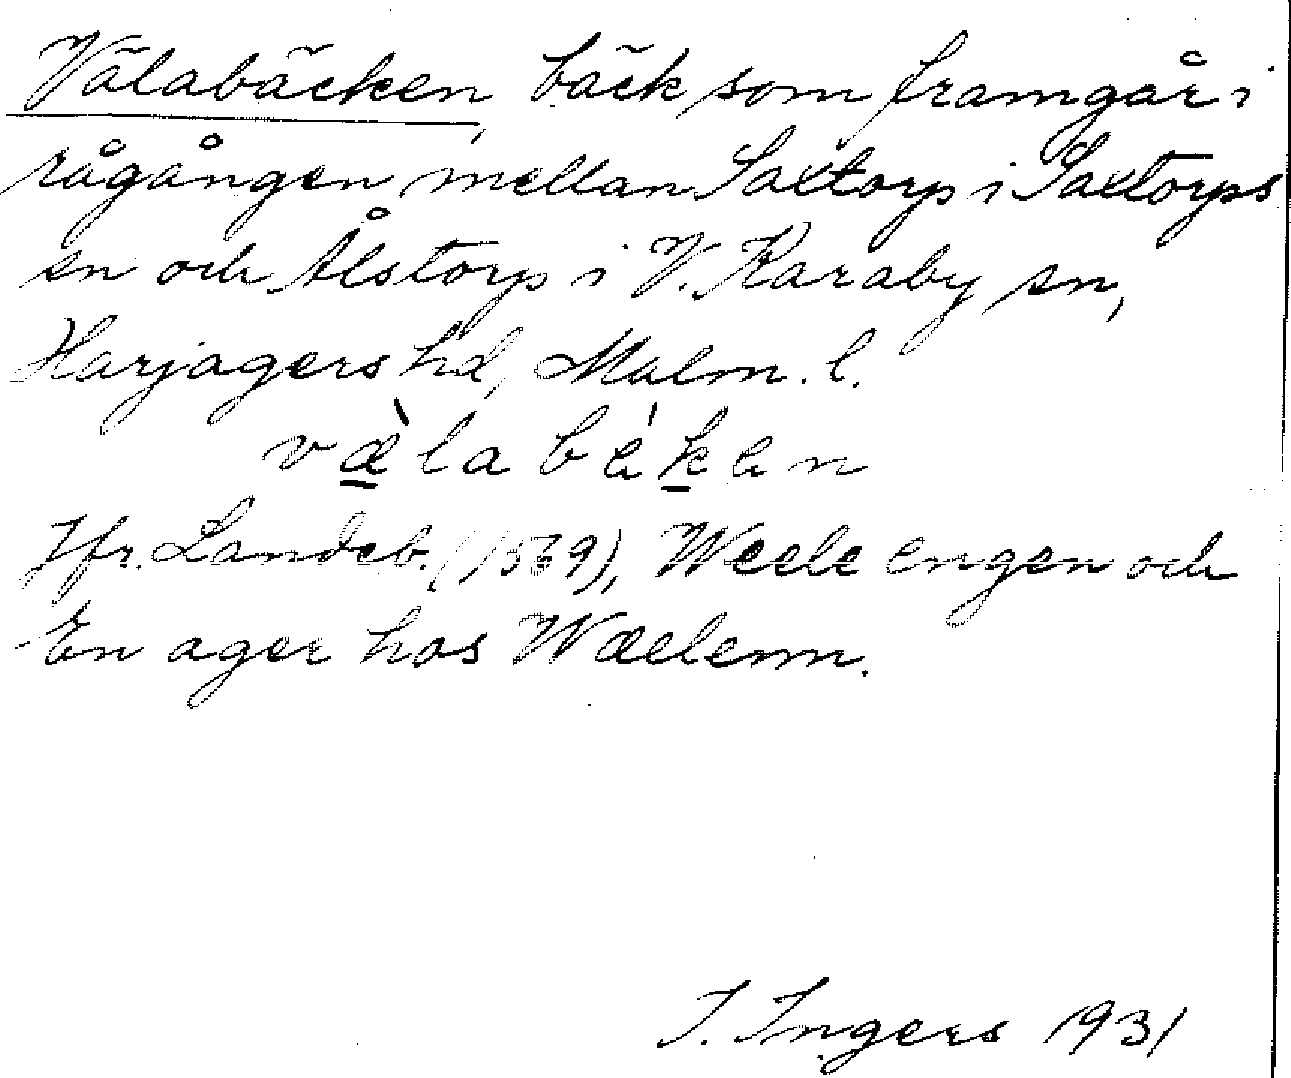 Välabäcken, bäck som framgår i
rågången mellan Saxtorp i Saxtorps
sn och Ålstorp i V. Karaby sn,
Harjagers hd, Malm. l.
væ̀la bèken
Jfr. Landeb. (1569), Weele engen och
En ager hos Wæelenn.
I. Ingers 1931